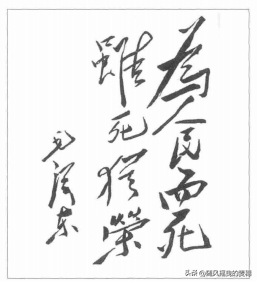 為人民而死
雖死猶榮
毛泽东
头条 @随风